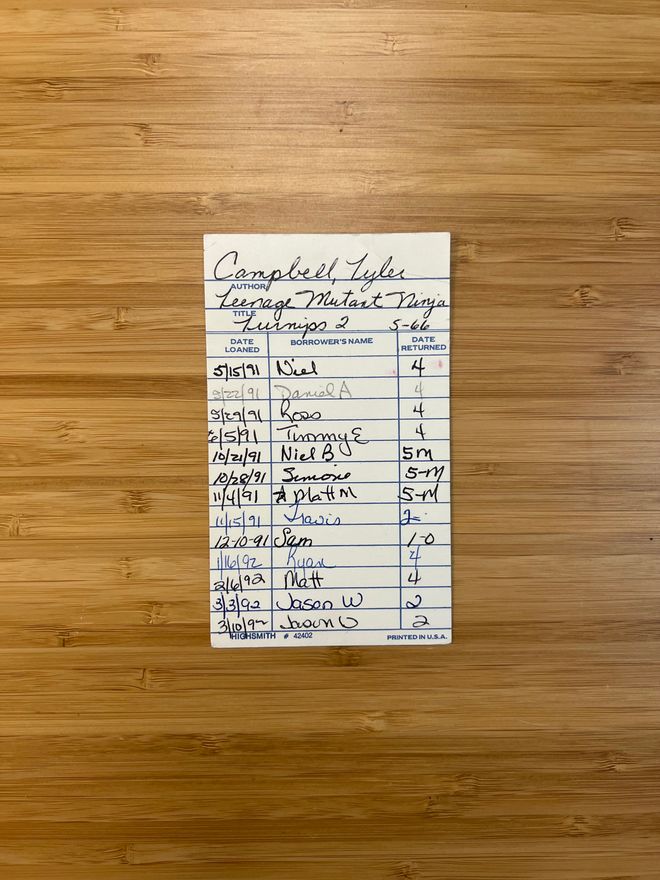 Campbell, Tyler
AUTHOR
Teenage Mutant Ninja
TITLE
Turnips 2 S-66
DATE LOANED BORROWER'S NAME DATE RETURNED
5/15/91 Niel 4
5/22/91 Daniel A 4
5/29/91 Ross 4
6/5/91 Timmy E 4
10/21/91 Niel B 5M
10/28/91 Simone 5-M
11/4/91 Matt M 5-M
11/15/91 Travis 2
12-10-91 Sam 1-O
1/16/92 Ryan 4
2/6/92 Matt 4
3/3/92 Jason W 2
3/10/92 Jason W 2
HIGHSMITH # 42402 PRINTED IN U.S.A.